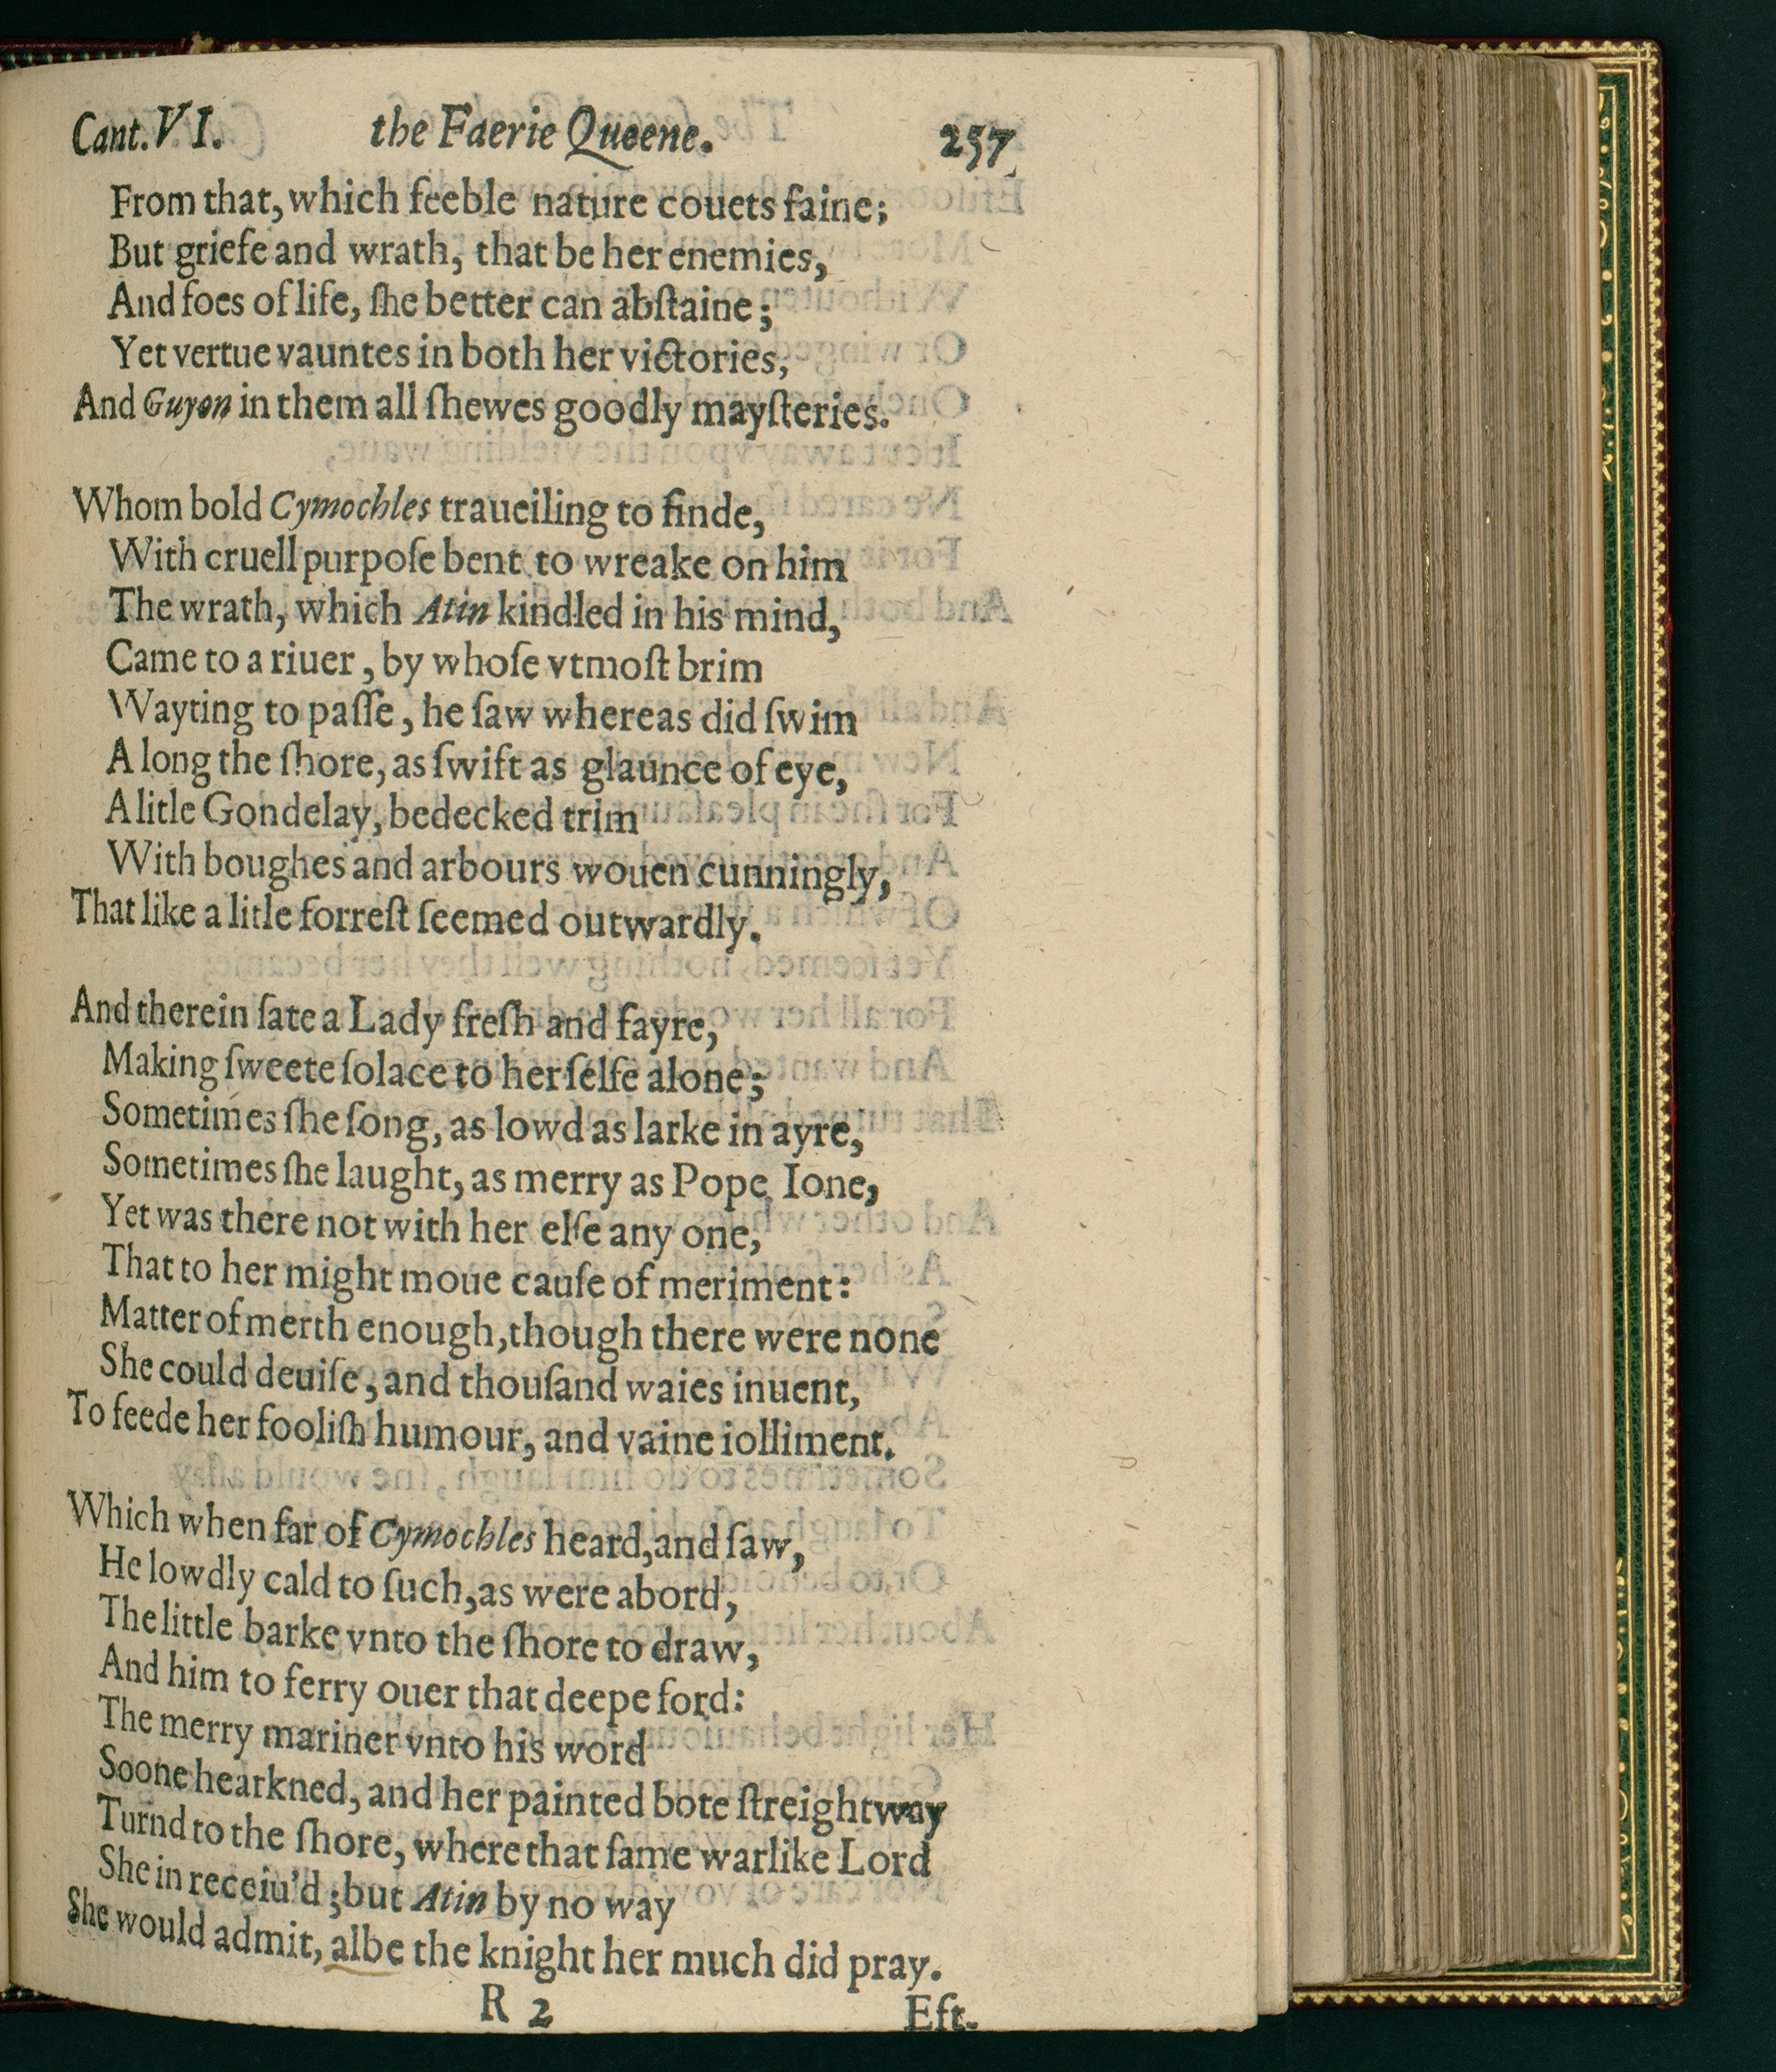 Cant. VI. the Faerie Queene. 257
From that, which feeble nature couets faine;
But griefe and wrath, that be her enemies,
And foes of life, ſhe better can abſtaine;
Yet vertue vauntes in both her victories,
And Guyon in them all ſhewes goodly mayſteries.
Whom bold Cymochles traueiling to finde,
With cruell purpoſe bent to wreake on him
The wrath, which Atin kindled in his mind,
Came to a riuer, by whoſe vtmoſt brim
Wayting to paſſe, he ſaw whereas did ſwim
A long the ſhore, as ſwift as glaunce of eye,
A litle Gondelay, bedecked trim
With boughes and arbours wouen cunningly,
That like a litle forreſt ſeemed outwardly.
And therein ſate a Lady freſh and fayre,
Making ſweete ſolace to her ſelfe alone;
Sometimes ſhe ſong, as lowd as larke in ayre,
Sometimes ſhe laught, as merry as Pope Ione,
Yet was there not with her elſe any one,
That to her might moue cauſe of meriment:
Matter of merth enough, though there were none
She could deuiſe, and thouſand waies inuent,
To feede her fooliſh humour, and vaine iolliment.
Which when far of Cymochles heard, and ſaw,
He lowdly cald to ſuch, as were abord,
The little barke vnto the ſhore to draw,
And him to ferry ouer that deepe ford:
The merry mariner vnto his word
Soone hearkned, and her painted bote ſtreightway
Turnd to the ſhore, where that ſame warlike Lord
She in receiu'd; but Atin by no way
She would admit, albe the knight her much did pray.
R 2 Eft-